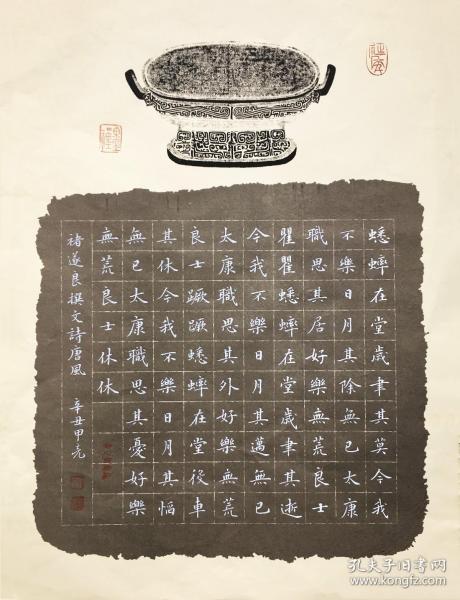 蟋蟀在堂歲聿其莫今我
不樂日月其除無已太康
職思其居好樂無荒良士
瞿瞿蟋蟀在堂歲聿其逝
今我不樂日月其邁無已
太康職思其外好樂無荒
良士蹶蹶蟋蟀在堂役車
其休今我不樂日月其慆
無已太康職思其憂好樂
無荒良士休休
褚遂良撰文詩唐風 辛丑甲亮
孔夫子旧书网
www.kongfz.com